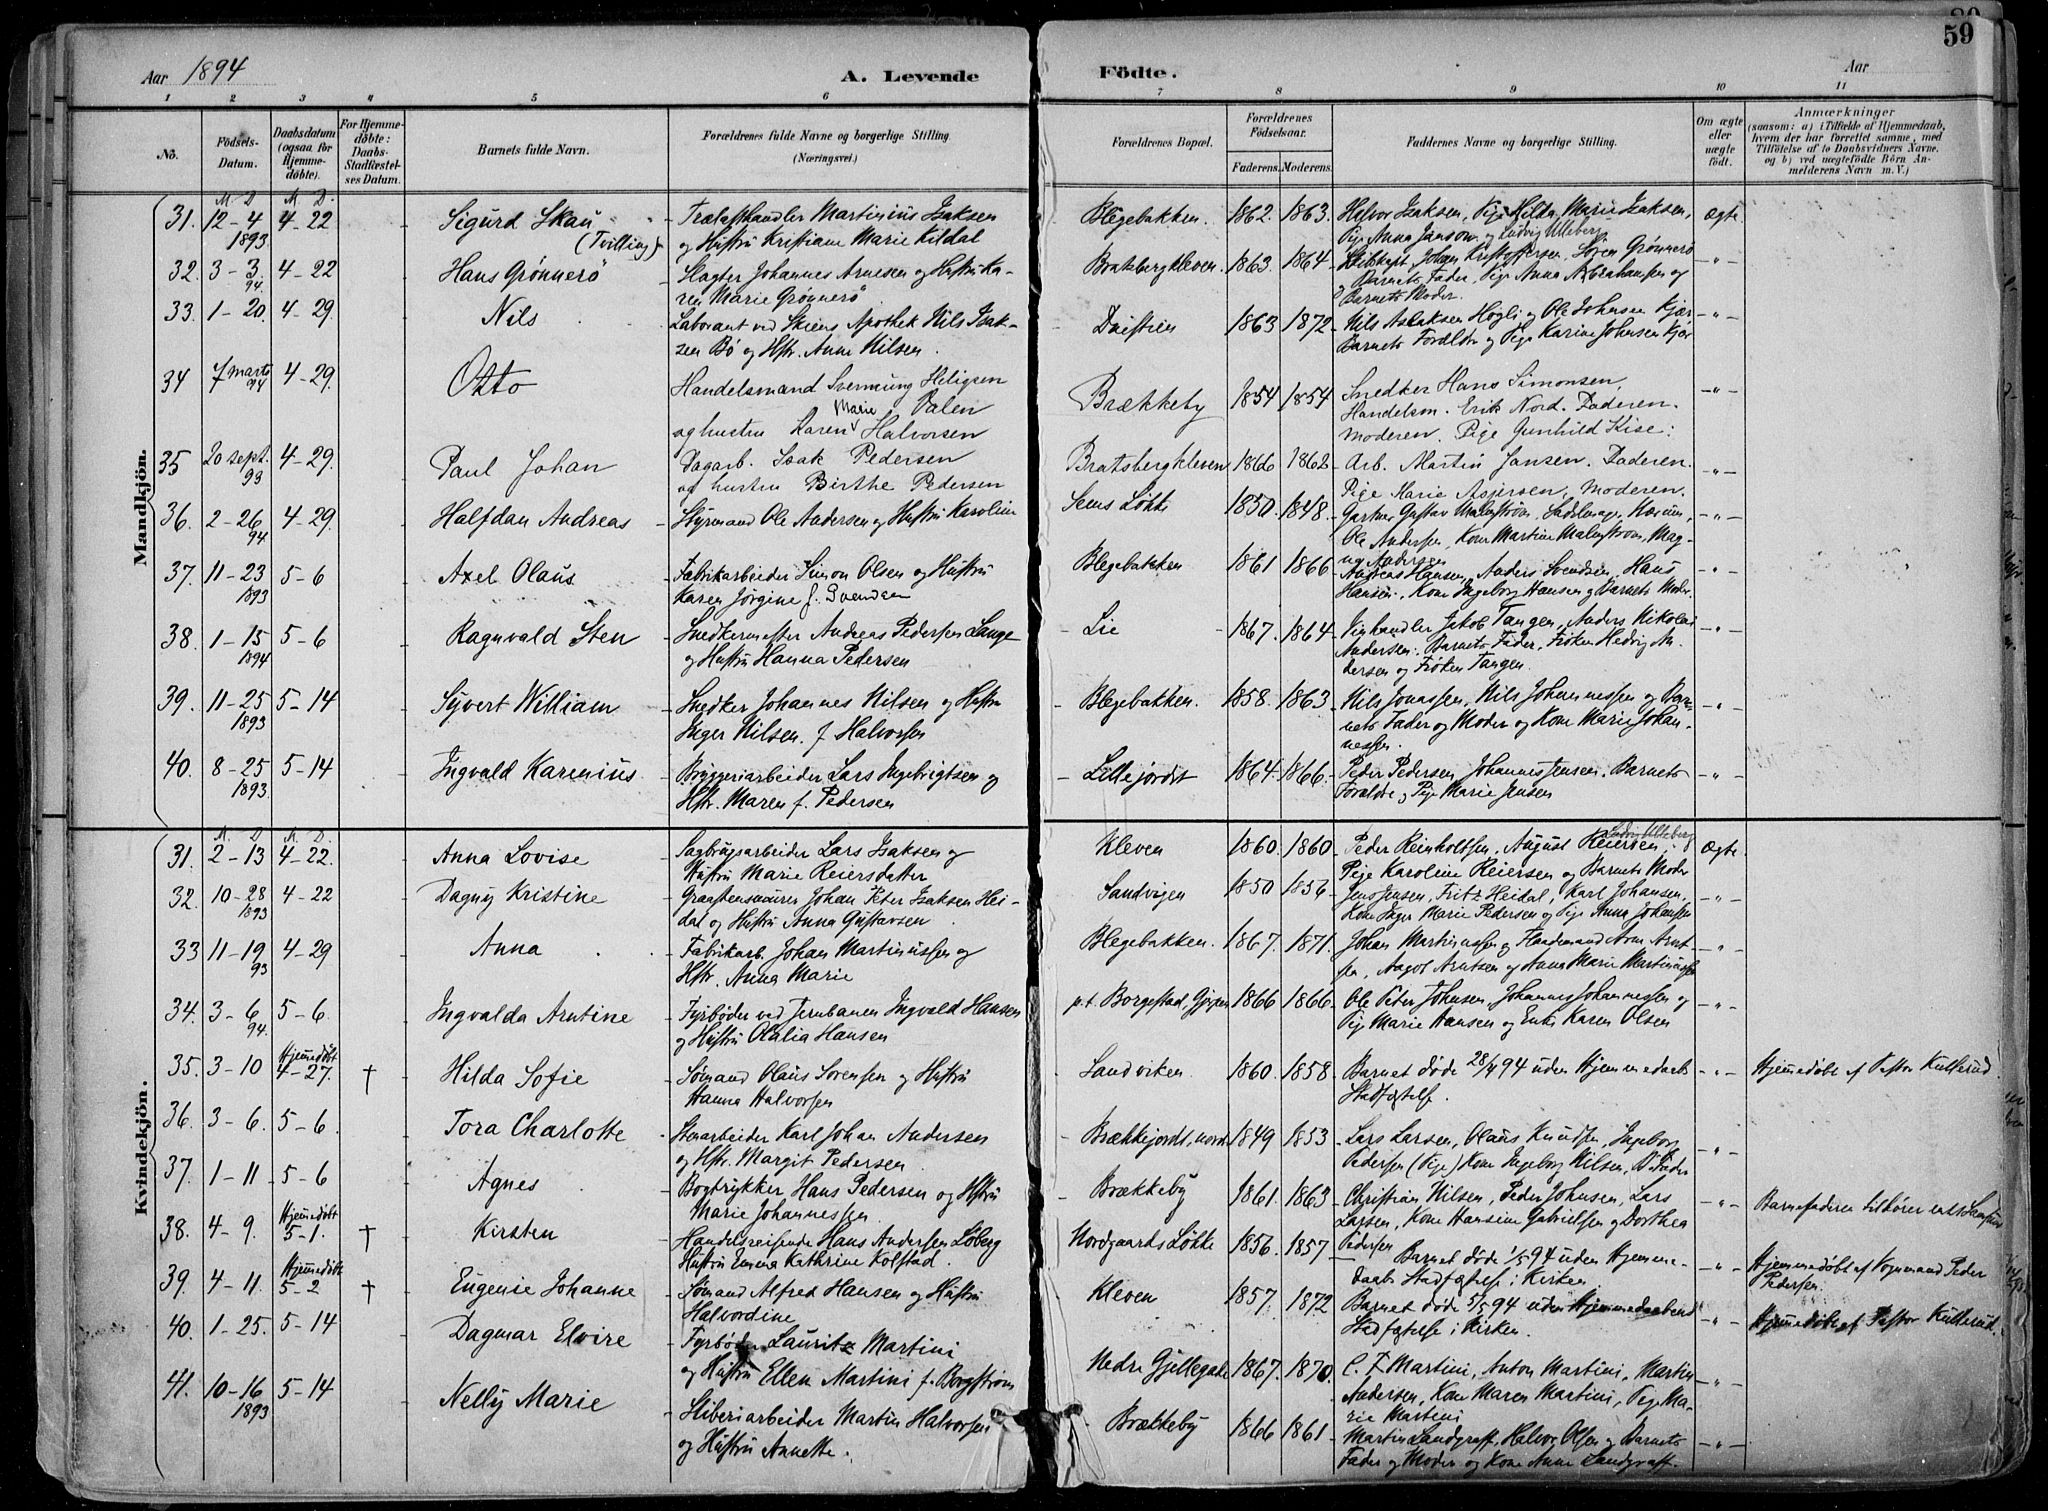 59
Aar 1894
A. Levende
Födte.
Aar
1 2 3 4 5 6 7 8 9 10 11
Nö.
Födsels-Datum.
Daabsdatum (ogsaa for Hjemme-döbte).
For Hjemme-döbte: Daabs-Stadfæstel-ses Datum.
Barnets fulde Navn.
Forældrenes fulde Navne og borgerlige Stilling (Næringsvei.)
Forældrenes Bopæl.
Forældrenes Födselsaar.
Faderens. Moderens.
Faddernes Navne og borgerlige Stilling.
Om ægte eller uægte födt.
Anmærkninger
(saasom: a) i Tilfælde af Hjemmedaab,
hvem der har forrettet samme, med
Tilföielse af to Daabsvidners Navne.
og b) ved uægtefödte Börn An-
melderens Navn m. V.)
Mandkjön.
M D M. D.
31. 12-4 1893 4-22 Sigurd Skau (Tvilling) Trælasthandler Martinius Isaksen
og Hustru Kristiane Marie Kildal
Blegebakken. 1862. 1863. Helvor Isaksen, Pige Hilda Marie Isaksen, Ægte
Pige Anna Janson og Ludvig Ulleberg
32. 3-3. 94. 4-22 Hans Grønnerö Slagter Johannes Arnesen og Hustru Ka-
ren Marie Grønnerö
Bratsbergkleven. 1863. 1864. Johan Kristoffersen, Søren Grønnerö
og Barnets Fader, Pige Anna Abrahamsen og
Barnets Moder.
33. 1-20. 4-29. Nils Laborant ved Skiens Apothek Nils Isak-
sen Bö og Hstr. Anne Nilsen.
1863 1872 Nils Aslaksen Högli og Ole Johnsen Kjær
Barnets Forældre og Pige Karine Johnsen Kjær
34 7 marts 94 4-29. Otto Handelsmand Svennung Heligsen Valen
og hustru Karen Marie Halvorsen
Brækkeby 1854 1854 Snedker Hans Simonsen,
Handelsm. Erik Nord. Faderen.
Moderen. Pige Gunhild Kise:
35 20 sept. 93 4-29. Paul Johan Dagarb. Isak Pedersen
og hustru Birthe Pedersen
Bratsbergkleven 1866 1862 Arb. Martin Jansen. Faderen.
Pige Marie Asjersen, Moderen.
36. 2-26 94 4-29. Halfdan Andreas Styrmand Ole Andersen og Hustru Karoline
Sems Løkke 1850 1848. Gartner Gustav Malmstrøm,
Ole Andersen, Kone Martine Malmstrøm, Mag-
na Andersen
37. 11-23 1893 5-6 Axel Olaus Fabrikarbeider Simon Olsen og Hustru
Karen Jörgine f. Svendsen
Blegebakken 1861 1866 Andreas Hansen, Anders Svendsen, Hans
Hansen, Kone Ingeborg Hansen og Barnets Moder.
38. 1-15 1894 5-6 Ragnvald Sten Snedkermester Andreas Pedersen Lange
og Hustru Hanna Pedersen
Lie 1867. 1864 Vinhandler Jakob Tangen, Anders Nikolai
Andersen, Barnets Fader, Frøken Hedvig An-
dersen og Frøken Tangen.
39. 11-25 1893 5-14 Syvert William Snedker Johannes Nilsen og Hustru
Inger Nilsen f Halvorsen
Blegebakken. 1858. 1863. Nils Jonassen, Nils Johannessen og Bar-
nets Fader og Moder og Kone Marie Johan-
nessen.
40. 8-25 1893. 5-14 Ingvald Karenius Bryggeriarbeider Lars Ingebrigtsen og
Hstr. Maren f. Pedersen
Lillejordet 1864. 1866. Peder Pedersen, Johannes Jensen. Barnets
Forældre og Pige Marie Jensen
Kvindekjön.
M D M. D.
31. 2-13 4-22. Anna Lovise Sagbrugsarbeider Lars Isaksen og
Hustru Marie Reiersdatter
Kleven 1860. 1860 Peder Reinholtsen, August Reiersen, Ludvig Ulleberg Ægte
Pige Karoline Reiersen og Barnets Moder
32. 10-28 1893 4-22 Dagny Kristine Graastensmurer Johan Peter Isaksen Hei-
dal og Hustru Anna Gustavsen
Sandvigen 1850 1856 Jens Jensen, Fritz Heidal, Karl Johansen,
Kone Inger Marie Pedersen og Pige Anna Johansen
33 11-19 93 4-29 Anna Fabrikarb. Johan Martinussen og
Hstr. Anna Marie
Blegebakken. 1867. 1871. Johan Martinussen og Arnt-
sen, Aagot Arntsen og Anna Marie Martinussen
34. 3-6 94. 5-6. Ingvalda Arntine Fyrbøder ved Jernbanen Ingvald Hansen
og Hustru Olalia Hansen
p.t. Borgestad, Gjerpen 1866 1866. Ole Peter Johnsen, Johannes Johannessen og
Pige Marie Hansen og Enke Karen Olsen
35. 3-10 Hjemmedøbt 4-27. † Hilda Sofie Sømand Olaus Sørensen og Hustru
Hanna Halvorsen
Sandviken 1860. 1858. Barnet døde 28/4 94 uden Hjemmedaabs
Stadfæstelse. Hjemmedøbt af Pastor Kullerud.
36. 3-6. 5-6. Tora Charlotte Stenarbeider Karl Johan Andersen
og Hstr. Margit Pedersen
Brækkejordet, nordre 1849 1853 Lars Larsen, Olaus Knudsen, Ingeborg
Pedersen (Pige) Kone Ingeborg Nilsen, B. Fader
37. 1-11 5-6 Agnes Bogtrykker Hans Pedersen og Hstr
Marie Johannessen.
Brækkeby 1861. 1863 Christian Nilsen, Peder Johnsen, Lars
Larsen, Kone Hansine Gabrielsen og Dorthea
Pedersen
Barnefaderen tilhører
38. 4-9. Hjemmedøbt 5-1. † Kirsten Handelsreisende Hans Andersen Löberg
Hustru Emma Kathrine Kolstad.
Nordgaards Løkke 1856. 1857 Barnet døde 1/5 94 uden Hjemme-
daabs Stadfæstelse i Kirken. Hjemmedøbt af Vognmand Peder
Pedersen.
39. 4-11. Hjemmedøbt 5-2 † Eugenie Johanne Sømand Alfred Hansen og Hustru
Halvordine
Kleven 1857. 1872 Barnet døde 5/5 94 uden Hjemmedaabens
Stadfæstelse i Kirken. Hjemmedøbt af Pastor Kullerud.
40. 1-25. 5-14 Dagmar Elvire Fyrbøder Lauritz Martini
og Hustru Ellen Martini f. Borgstrøm
Nedre Gjellegade 1867. 1870. C. F Martini, Anton Martini, Martin
Andersen, Kone Maren Martini, Pige Ma-
rie Martini
41. 10-16 1893 5-14 Nelly Marie Sliberiarbeider Martin Halvorsen
og Hustru Annette.
Brækkeby 1866 1861 Martin Landgraff, Halvor Olsen og Barnets
Fader og Moder og Kone Anne Landgraff.